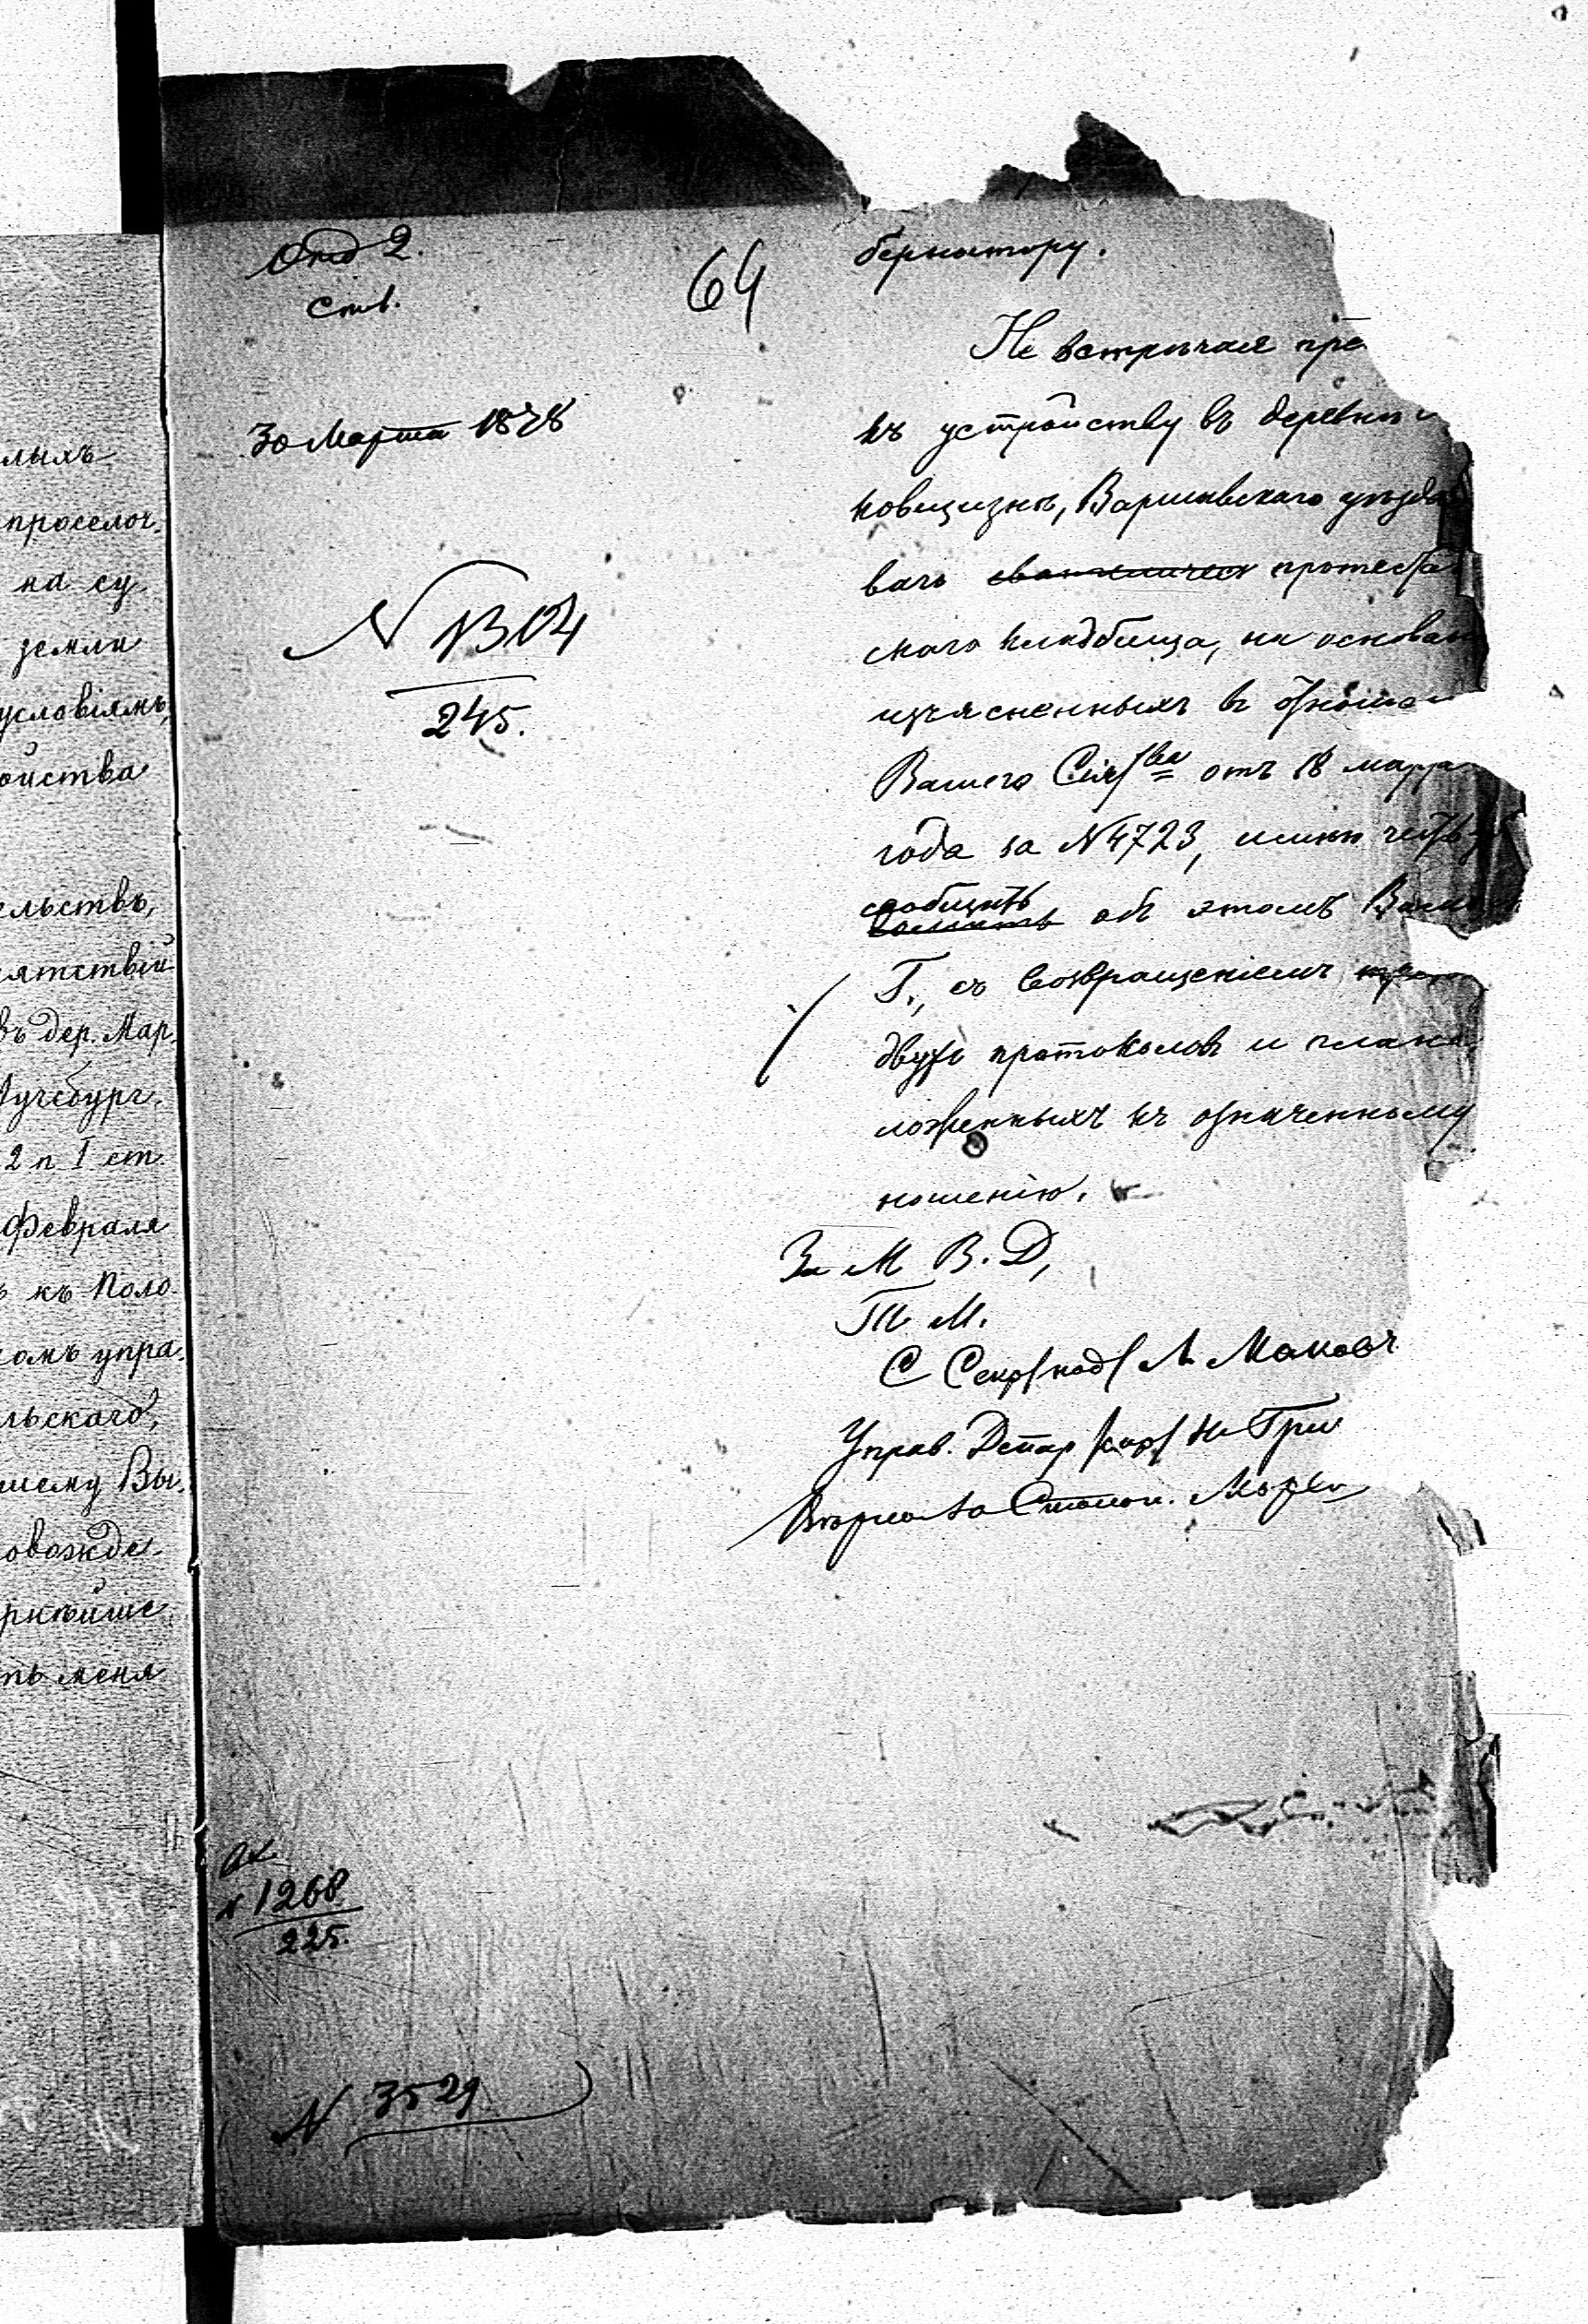 лыхъ
проселоч.
на су
земли
условіямъ,
ойства
ельствъ,
ятствій
въ дер. Мар.
Лучсбург.
2 п I ст.
Февраля
ъ къ Поло
омъ упра.
льскаго,
шему Вы.
овожде.
рнѣйше
ть меня
Отд 2.
Ст 1.
64
30 Марта 1878
N 1304
245.
бернатору.
Не встрѣчая пре
къ устройству въ деревнѣ
новщизнѣ, Варшавскаго уѣзда
ваго протеста
скаго кладбища, на основан
изъясненныхъ въ отношен
Вашего Сія/ва отъ 18 марта
года за N 4723, имѣю честь
сообщить
объ этомъ Вашему
Г., съ возвращеніемъ
двухъ протоколовъ и плана
ложенныхъ къ означенному
ношенію.
За М В. Д,
Т. М.
С Секр/под/ Л. Маковъ
Управ. Депар /скр/ Н Гри
Вѣрно: За Столон.
N 1268
225.
N 3529